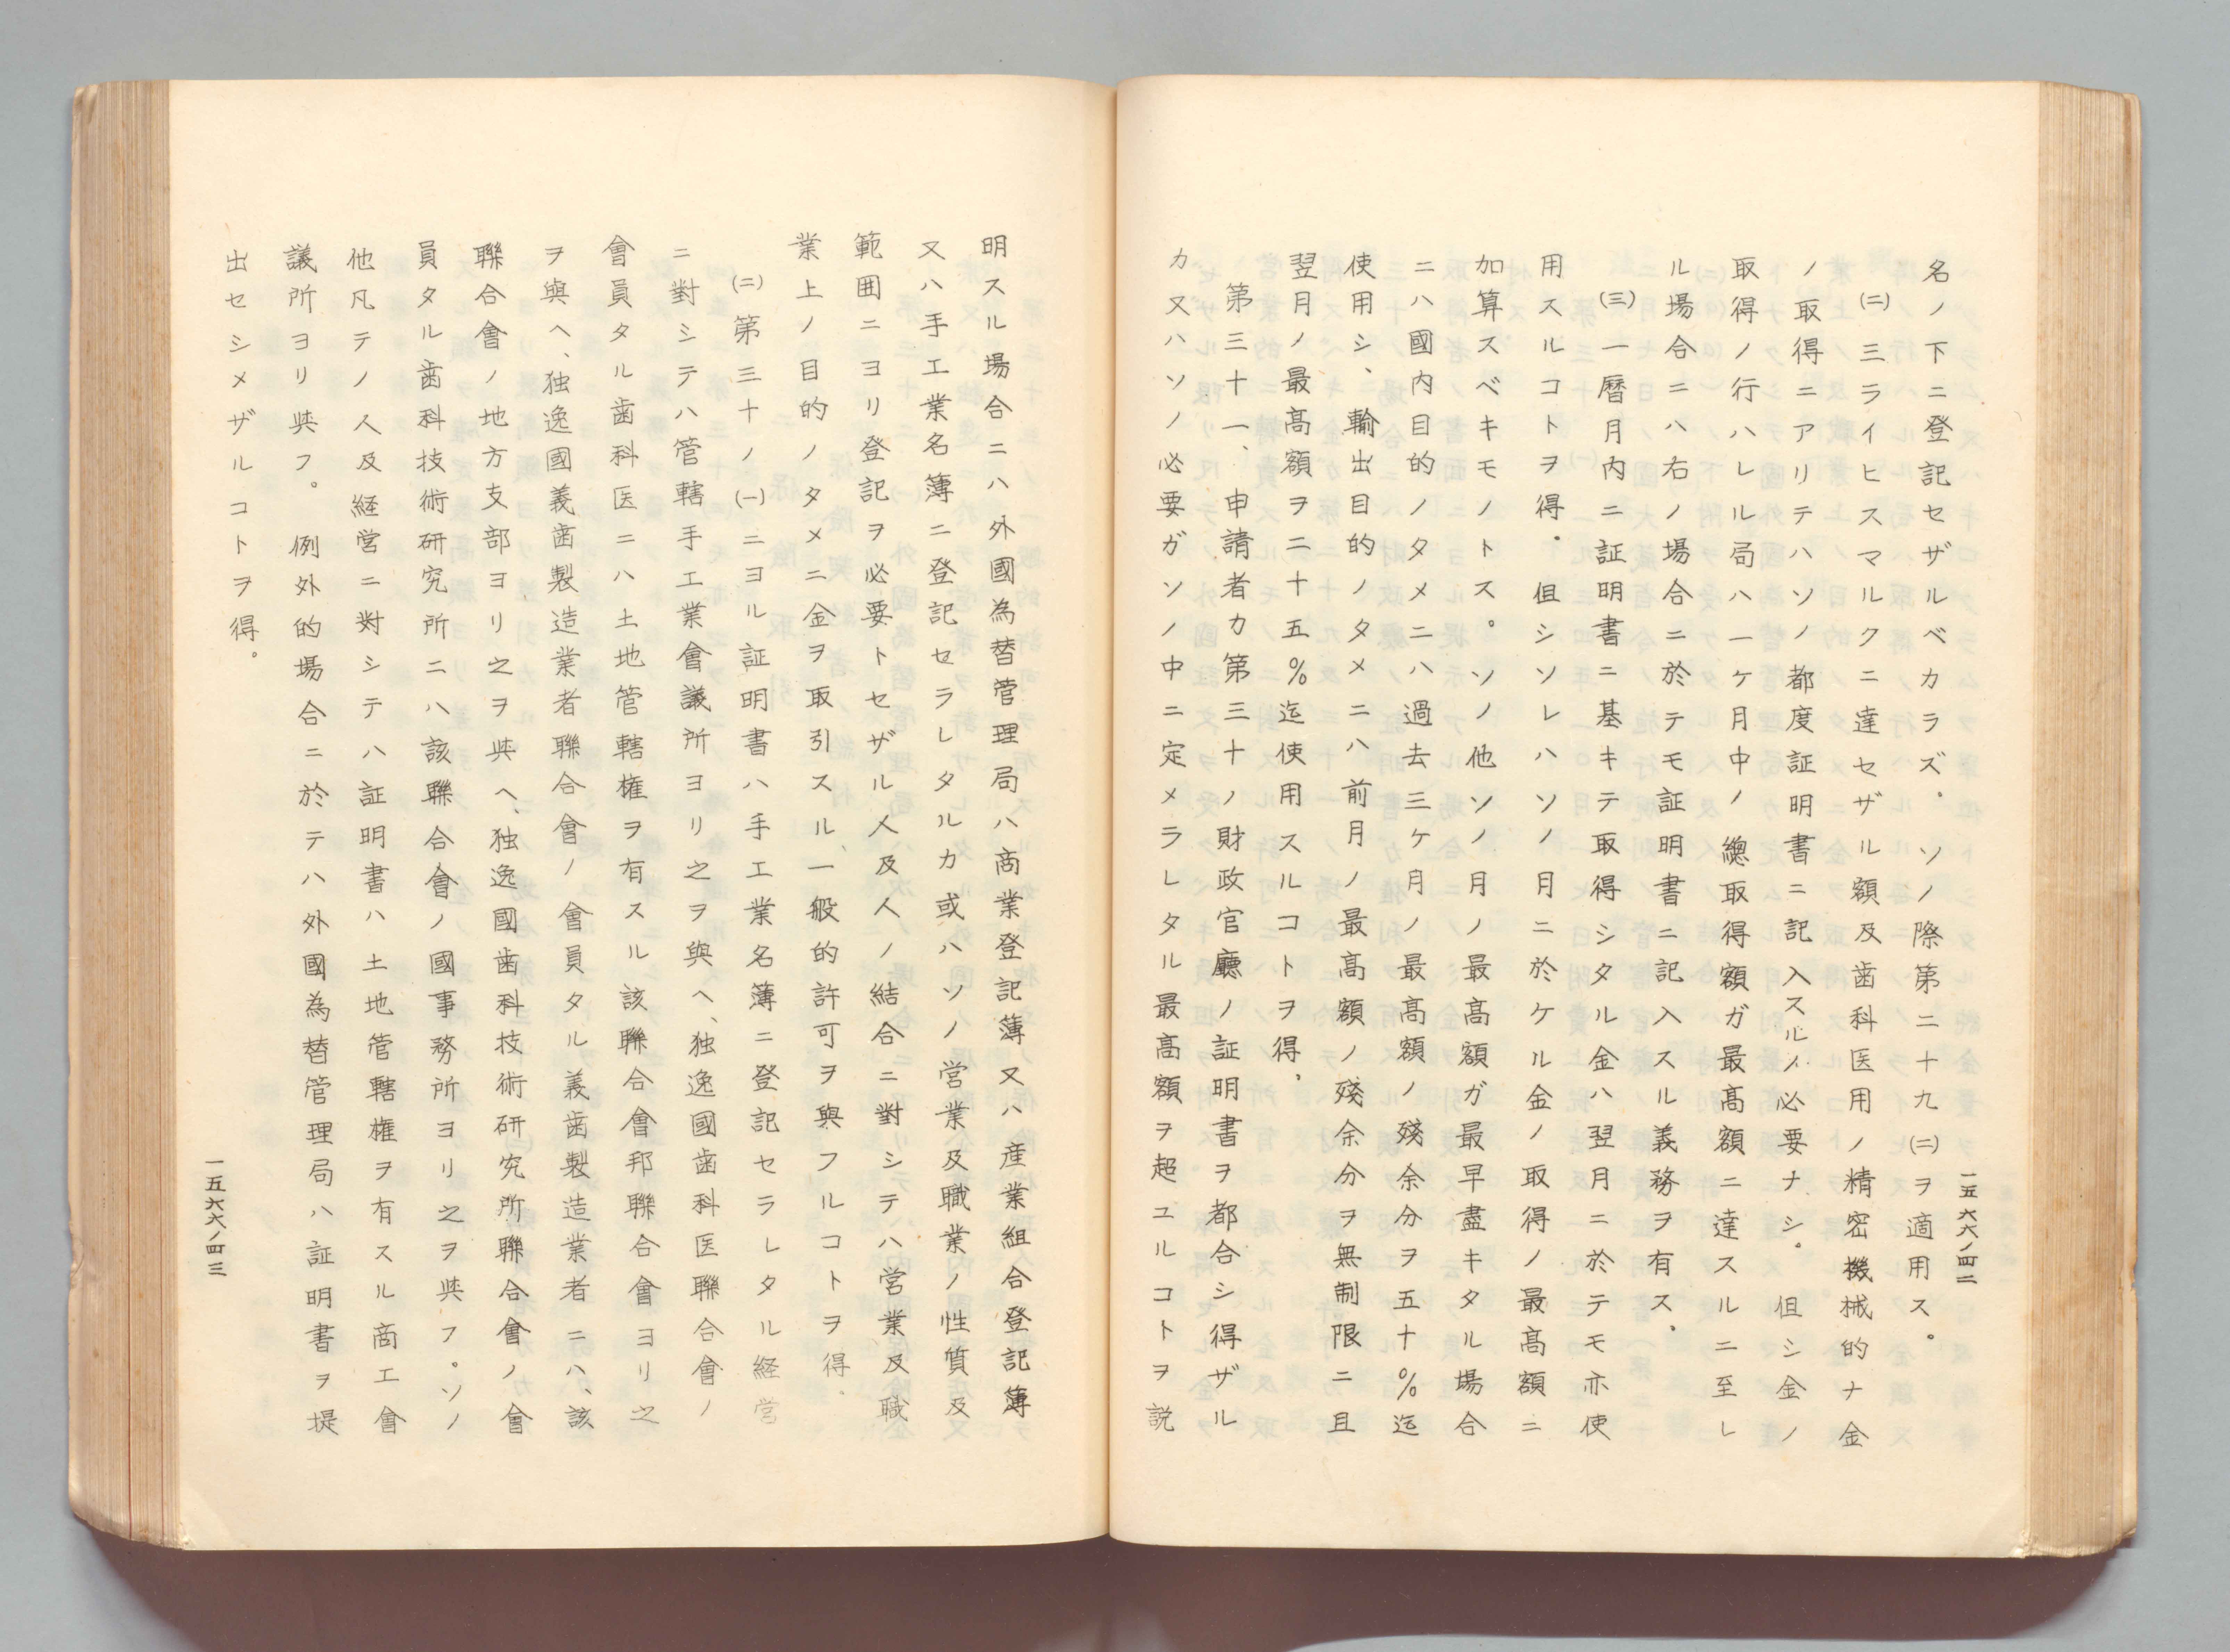 一五六六ノ四二
名ノ下ニ登記セザルベカラズ。ソノ際第二十九㈡ヲ適用ス。
㈡三ライヒスマルクニ達セザル額及歯科医用ノ精密機械的ナ金
ノ取得ニアリテハソノ都度証明書ニ記入スルノ必要ナシ。但シ金ノ
取得ノ行ハレル局ハ一ケ月中ノ總取得額ガ最高額ニ達スルニ至レ
ル場合ニハ右ノ場合ニ於テモ証明書ニ記入スル義務ヲ有ス。
㈢一暦月内ニ証明書ニ基キテ取得シタル金ハ翌月ニ於テモ亦使
用スルコトヲ得。但シソレハソノ月ニ於ケル金ノ取得ノ最高額ニ
加算スベキモノトス。ソノ他ソノ月ノ最高額ガ最早盡キタル場合
ニハ國内目的ノタメニハ過去三ケ月ノ最高額ノ殘余分ヲ五十%迄
使用シ、輸出目的ノタメニハ前月ノ最高額ノ殘余分ヲ無制限ニ且
翌月ノ最高額ヲ二十五%迄使用スルコトヲ得。
第三十一、申請者カ第三十ノ財政官廳ノ証明書ヲ都合シ得ザル
カ又ハソノ必要ガソノ中ニ定メラレタル最高額ヲ超ユルコトヲ説
明スル場合ニハ外國為替管理局ハ商業登記簿又ハ産業組合登記簿
又ハ手工業名簿ニ登記セラレタルカ或ハソノ営業及職業ノ性質及
範囲ニヨリ登記ヲ必要トセザル人及人ノ結合ニ對シテハ営業及職
業上ノ目的ノタメニ金ヲ取引スル、一般的許可ヲ與フルコトヲ得。
㈡第三十ノ㈠ニヨル証明書ハ手工業名簿ニ登記セラレタル経営
ニ對シテハ管轄手工業會議所ヨリ之ヲ與ヘ、独逸國歯科医聯合會ノ
會員タル歯科医ニハ土地管轄権ヲ有スル該聯合會邦聯合會ヨリ之
ヲ與ヘ、独逸國義歯製造業者聯合會ノ會員タル義歯製造業者ニハ、該
聯合會ノ地方支部ヨリ之ヲ與ヘ、独逸國歯科技術研究所聯合會ノ會
員タル歯科技術研究所ニハ該聯合會ノ國事務所ヨリ之ヲ與フ。ソノ
他凡テノ人及経営ニ對シテハ証明書ハ土地管轄権ヲ有スル商工會
議所ヨリ與フ。例外的場合ニ於テハ外國為替管理局ハ証明書ヲ提
出セシメザルコトヲ得。
一五六六ノ四三